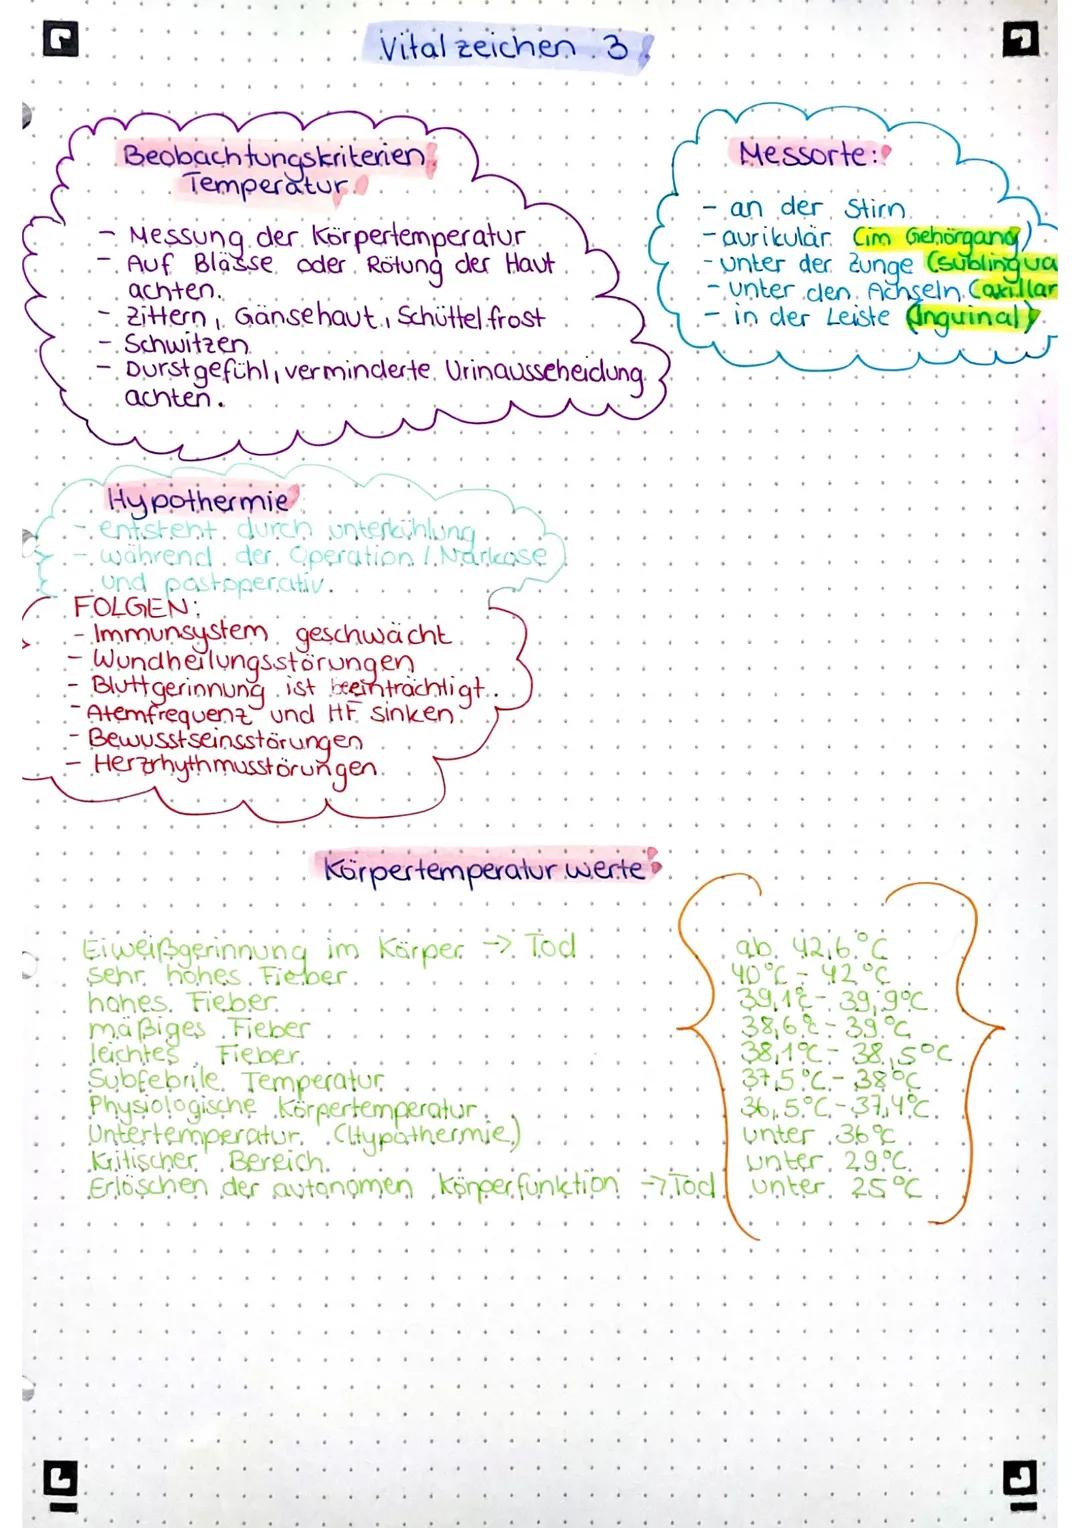 Vitalzeichen 3
Beobachtungskriterien
Temperatur
- Messung der Körpertemperatur
- Auf Blässe oder Rötung der Haut
achten.
- Zittern, Gänsehaut, Schüttelfrost
- Schwitzen
- Durstgefühl, verminderte Urinausscheidung
achten.
Messorte:
- an der Stirn
- aurikulär (im Gehörgang)
- unter der Zunge (sublingua
- unter den Achseln (axillar
- in der Leiste (Inguinal)
Hypothermie
- entsteht durch unterkühlung
- während der Operation / Narkose
und postoperativ.
FOLGEN:
- Immunsystem geschwächt
- Wundheilungsstörungen
- Bluttgerinnung ist beeinträchtigt.
- Atemfrequenz und HF sinken.
- Bewusstseinsstörungen
- Herzrhythmusstörungen
Körpertemperatur werte
Eiweißgerinnung im Körper -> Tod ab 42,6°C
sehr hohes Fieber 40°C - 42°C
hohes Fieber 39,1°C - 39,9°C
mäßiges Fieber 38,6°C - 39°C
leichtes Fieber 38,1°C - 38,5°C
Subfebrile Temperatur 37,5°C - 38°C
Physiologische Körpertemperatur 36,5°C - 37,4°C
Untertemperatur (Hypothermie) unter 36°C
Kritischer Bereich unter 29°C
Erlöschen der autonomen Körperfunktion -> Tod unter 25°C